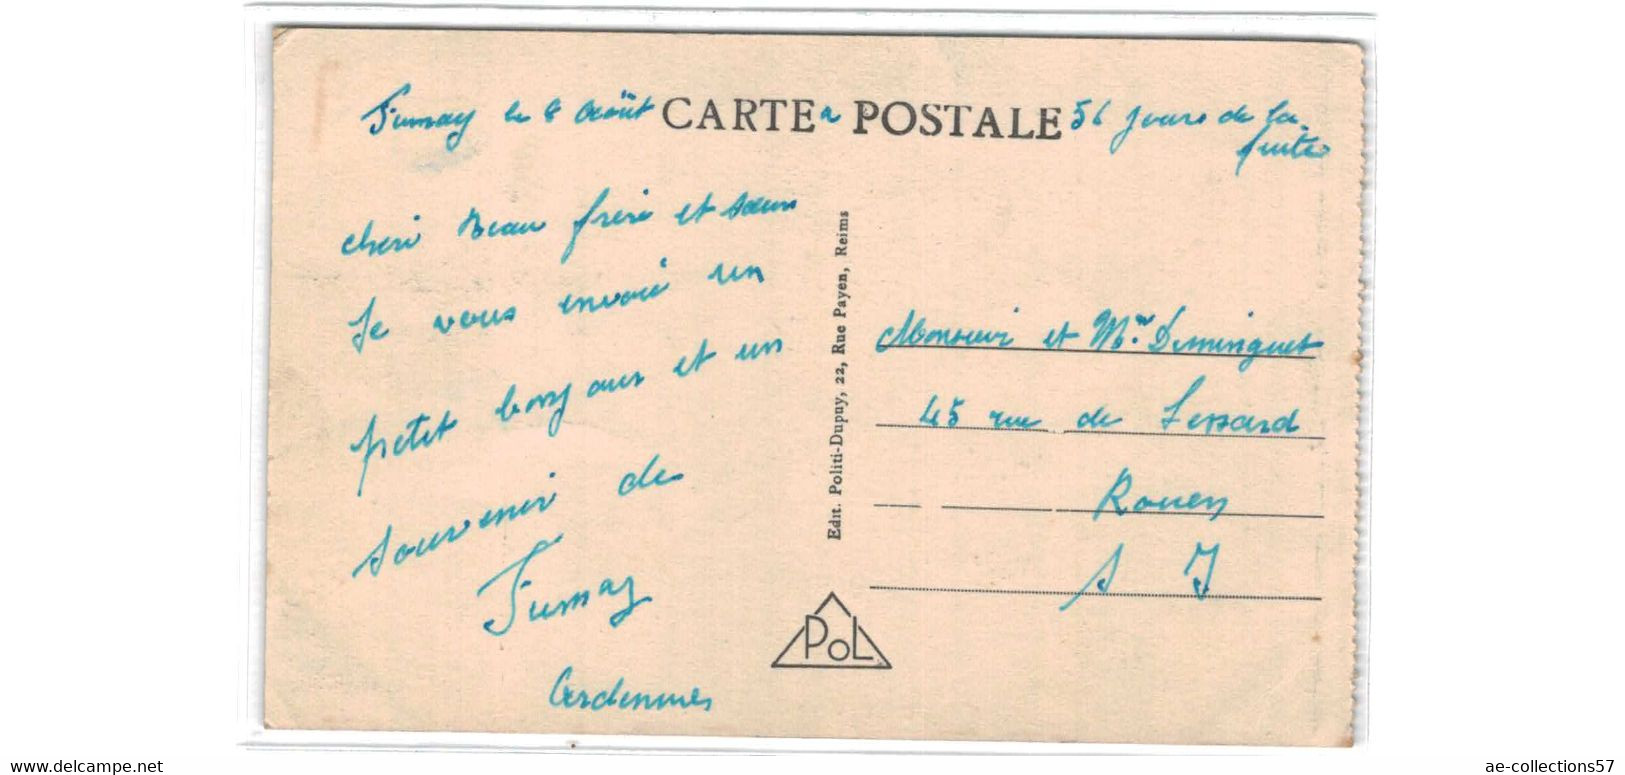 Fumay le 8 Août CARTE POSTALE 56 jours de la
fuite
cheri Beau frere et sœur
Je vous envoie un
petit bonjour et un
souvenir de
Fumay
Ardennes
Edit. Politi-Dupuy, 22, Rue Payen, Reims
Monsieur et Mme Dominguet
45 rue de Lessard
Rouen
S I
PoL
www.delcampe.net
ae-collections57